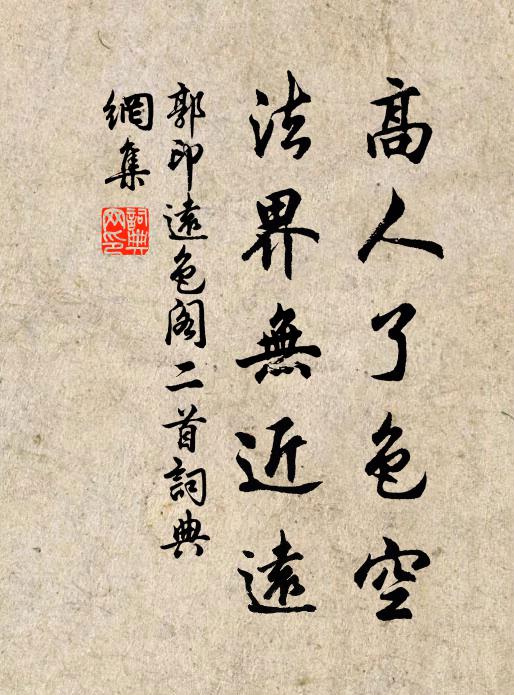 高人了色空
法界無近遠
郭印遠色閣二首詞典
網集
詞典網印